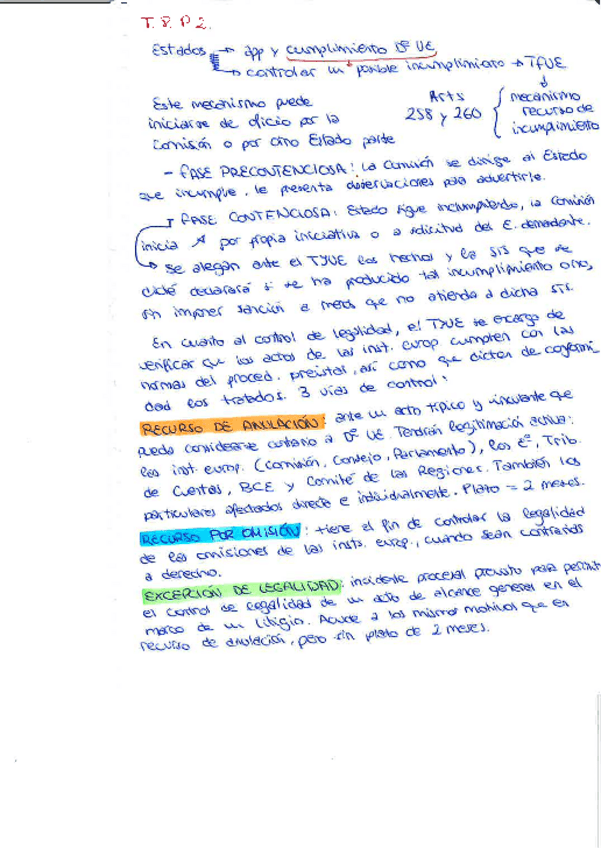 T.8.P2.
Estados → app y cumplimiento Dº UE
→ controlar un posible incumplimiento → TFUE
Este mecanismo puede
iniciarse de oficio por la
Comisión o por otro Estado parte
Arts
258 y 260
mecanismo
recurso de
incumplimiento
- FASE PRECONTENCIOSA: La Comisión se dirige al Estado
que incumple, le presenta observaciones para advertirle.
- FASE CONTENCIOSA: Estado sigue incumpliendo, la Comisión
inicia por propia iniciativa o a solicitud del E. demandante.
→ Se alegan ante el TJUE los hechos y la STS que se
dicte declarará si se ha producido tal incumplimiento o no,
sin imponer sanción a menos que no atienda a dicha STS.
En cuanto al control de legalidad, el TJUE se encarga de
verificar que los actos de las inst. europ cumplen con las
normas del proced. previstas, así como que dicten de conformi
dad los tratados. 3 vías de control:
RECURSO DE ANULACIÓN: ante un acto típico y vinculante que
pueda considerarse contrario a Dº UE. Tendrán legitimación activa:
las inst. europ. (Comisión, Consejo, Parlamento), los Eº, Trib.
de Cuentas, BCE y Comité de las Regiones. También los
particulares afectados directa e individualmente. Plazo = 2 meses.
RECURSO POR OMISIÓN: tiene el fin de controlar la legalidad
de las omisiones de las insts. europ., cuando sean contrarias
a derecho.
EXCEPCIÓN DE LEGALIDAD: incidente procesal previsto para permitir
el control de legalidad de un acto de alcance general en el
marco de un litigio. Acude a los mismos motivos que en
recurso de anulación, pero sin plazo de 2 meses.